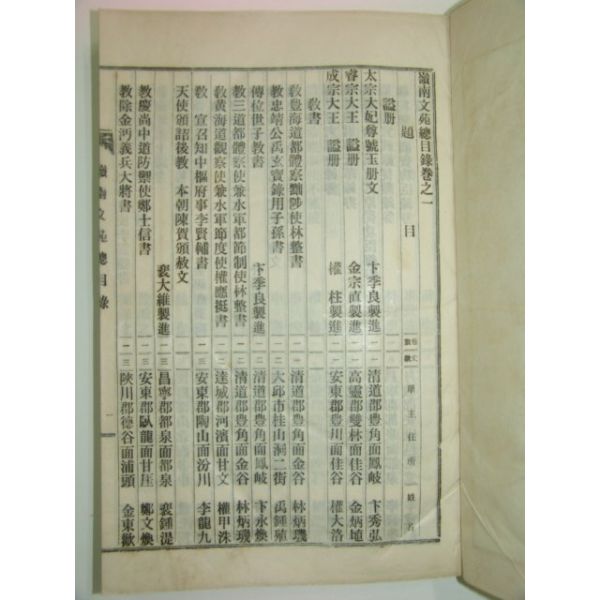 嶺南文苑總目錄卷之一
題 目 單主住所 姓名
諡册
太宗大妃尊號玉册文 卞季良製進 一 一 清道郡豊角面鳳岐 卞秀弘
睿宗大王 諡册 金宗直製進 一 一 高靈郡雙林面佳谷 金炳埴
成宗大王 諡册 權 柱製進 一 一 安東郡豊川面佳谷 權大洛
教書
教豊海道都體察黜陟使林整書 一 一 清道郡豊角面金谷 林炳璣
教忠靖公禹玄寶錄用子孫書 一 二 大邱市桂山洞二街 禹鍾殖
傳位世子教書 卞季良製進 一 二 清道郡豊角面鳳岐 卞永煥
教三道都體察使兼水軍都節制使林整書 一 二 清道郡豊角面金谷 林炳璣
教黄海道觀察使兼水軍節度使權應挺書 一 二 達城郡河濱面甘文 權甲洙
教 宣召知中樞府事李賢輔書 一 三 安東郡陶山面汾川 李龍九
天使頒誥後教 本朝陳賀頒赦文
裴大維製進 一 三 昌寧郡都泉面都泉 裴鍾湜
教慶尚中道防禦使鄭士信書 一 三 安東郡臥龍面甘厓 鄭文煥
教除金沔義兵大將書 一 三 陜川郡德谷面浦頭 金東歡
嶺南文苑總目錄 一